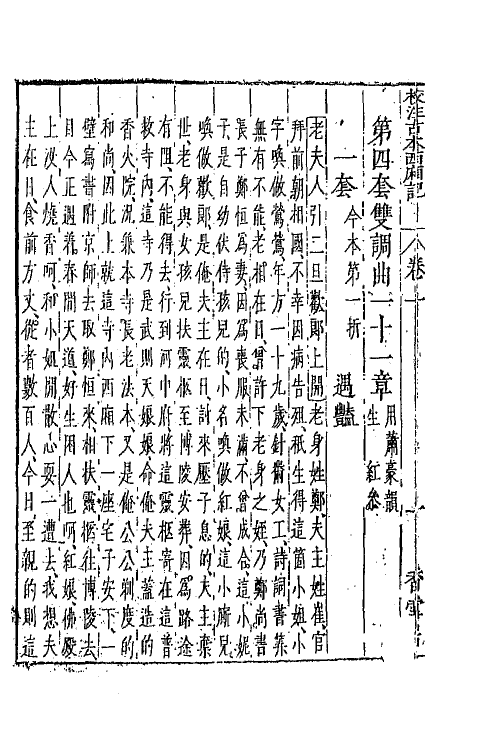 校注古本西廂記 卷一 一 香雪居
第四套雙調曲二十一章 用蕭豪韻
生 紅參
一套 今本第一折 遇豔
老夫人引二旦歡郎上開老身姓鄭夫主姓崔官
拜前朝相國不幸因病告殂秪生得這箇小姐小
字喚做鶯鶯年方一十九歲針黹女工詩詞書筭
無有不能老相在日曾許下老身之姪乃鄭尚書
長子鄭恒為妻因為喪服未滿不曾成合這小妮
子是自幼伏侍孩兒的小名喚做紅娘這小廝兒
喚做歡郎是俺夫主在日討來壓子息的夫主棄
世老身與女孩兒扶靈柩至博陵安葬因為路途
有阻不能得去行到河中府將這靈柩寄在這普
救寺內這寺乃是武則天娘娘命俺夫主蓋造的
香火院況兼本寺長老法本又是俺公公剃度的
和尚因此上就這寺內西廂下一座宅子安下一
壁寫書附京師去取鄭恒來相扶靈櫬往博陵去
目今正遇着春間天道好生困人也呵紅娘佛殿
上沒人燒香呵和小姐閒散心耍一遭去我想夫
主在日食前方丈從者數百人今日至親的則這